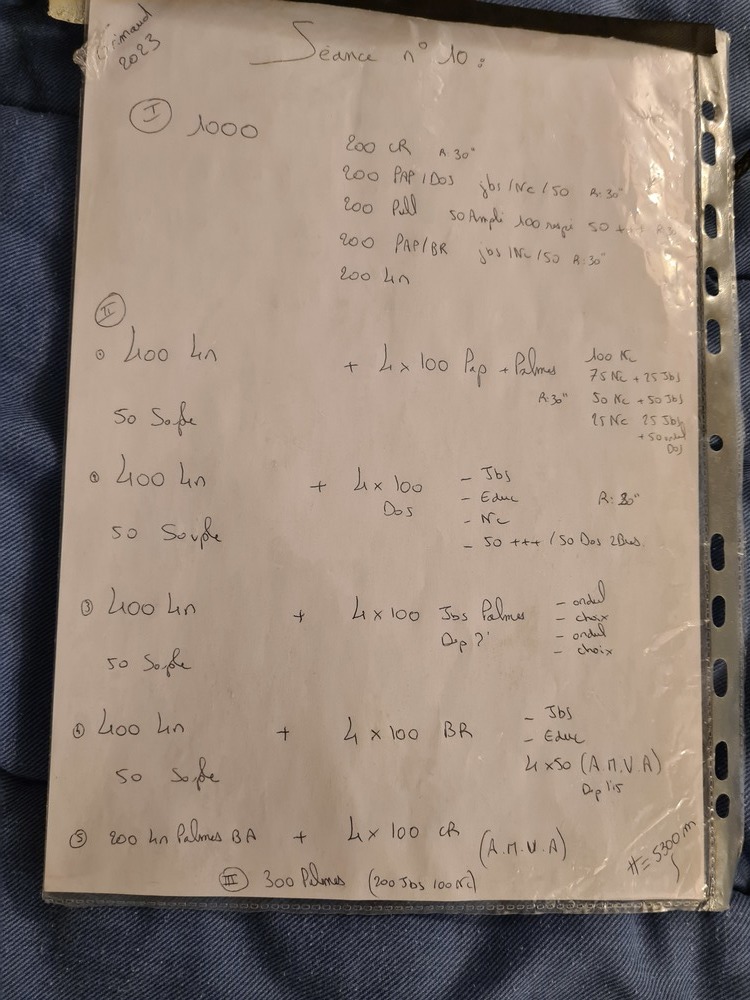 Grimaud
2023
Séance n° 10 :
I 1000
200 CR R:30"
200 PAP/DOS jbs/Nc/50 R:30"
200 Pull 50 Ampli 100 respi 50 +++ R:30"
200 PAP/BR jbs/Nc/50 R:30"
200 4n
II
① 400 4n + 4 x 100 Pap + Palmes 100 Nc
75 Nc + 25 Jbs
R:30" 50 Nc + 50 Jbs
50 Souple 25 Nc 25 Jbs
+ 50 ondul
Dos
② 400 4n + 4 x 100 - Jbs
Dos - Educ R: 20"
- Nc
50 Souple - 50 +++ / 50 Dos 2Bras
③ 400 4n + 4 x 100 Jbs Palmes - ondul
- choix
Dep 2' - ondul
- choix
50 Souple
④ 400 4n + 4 x 100 BR - Jbs
- Educ
50 Souple 4 x 50 (A.M.V.A)
Dep 1'15
⑤ 200 4n Palmes BA + 4 x 100 CR (A.M.V.A)
III 300 Palmes (200 Jbs 100 Nc)
# = 5300 m